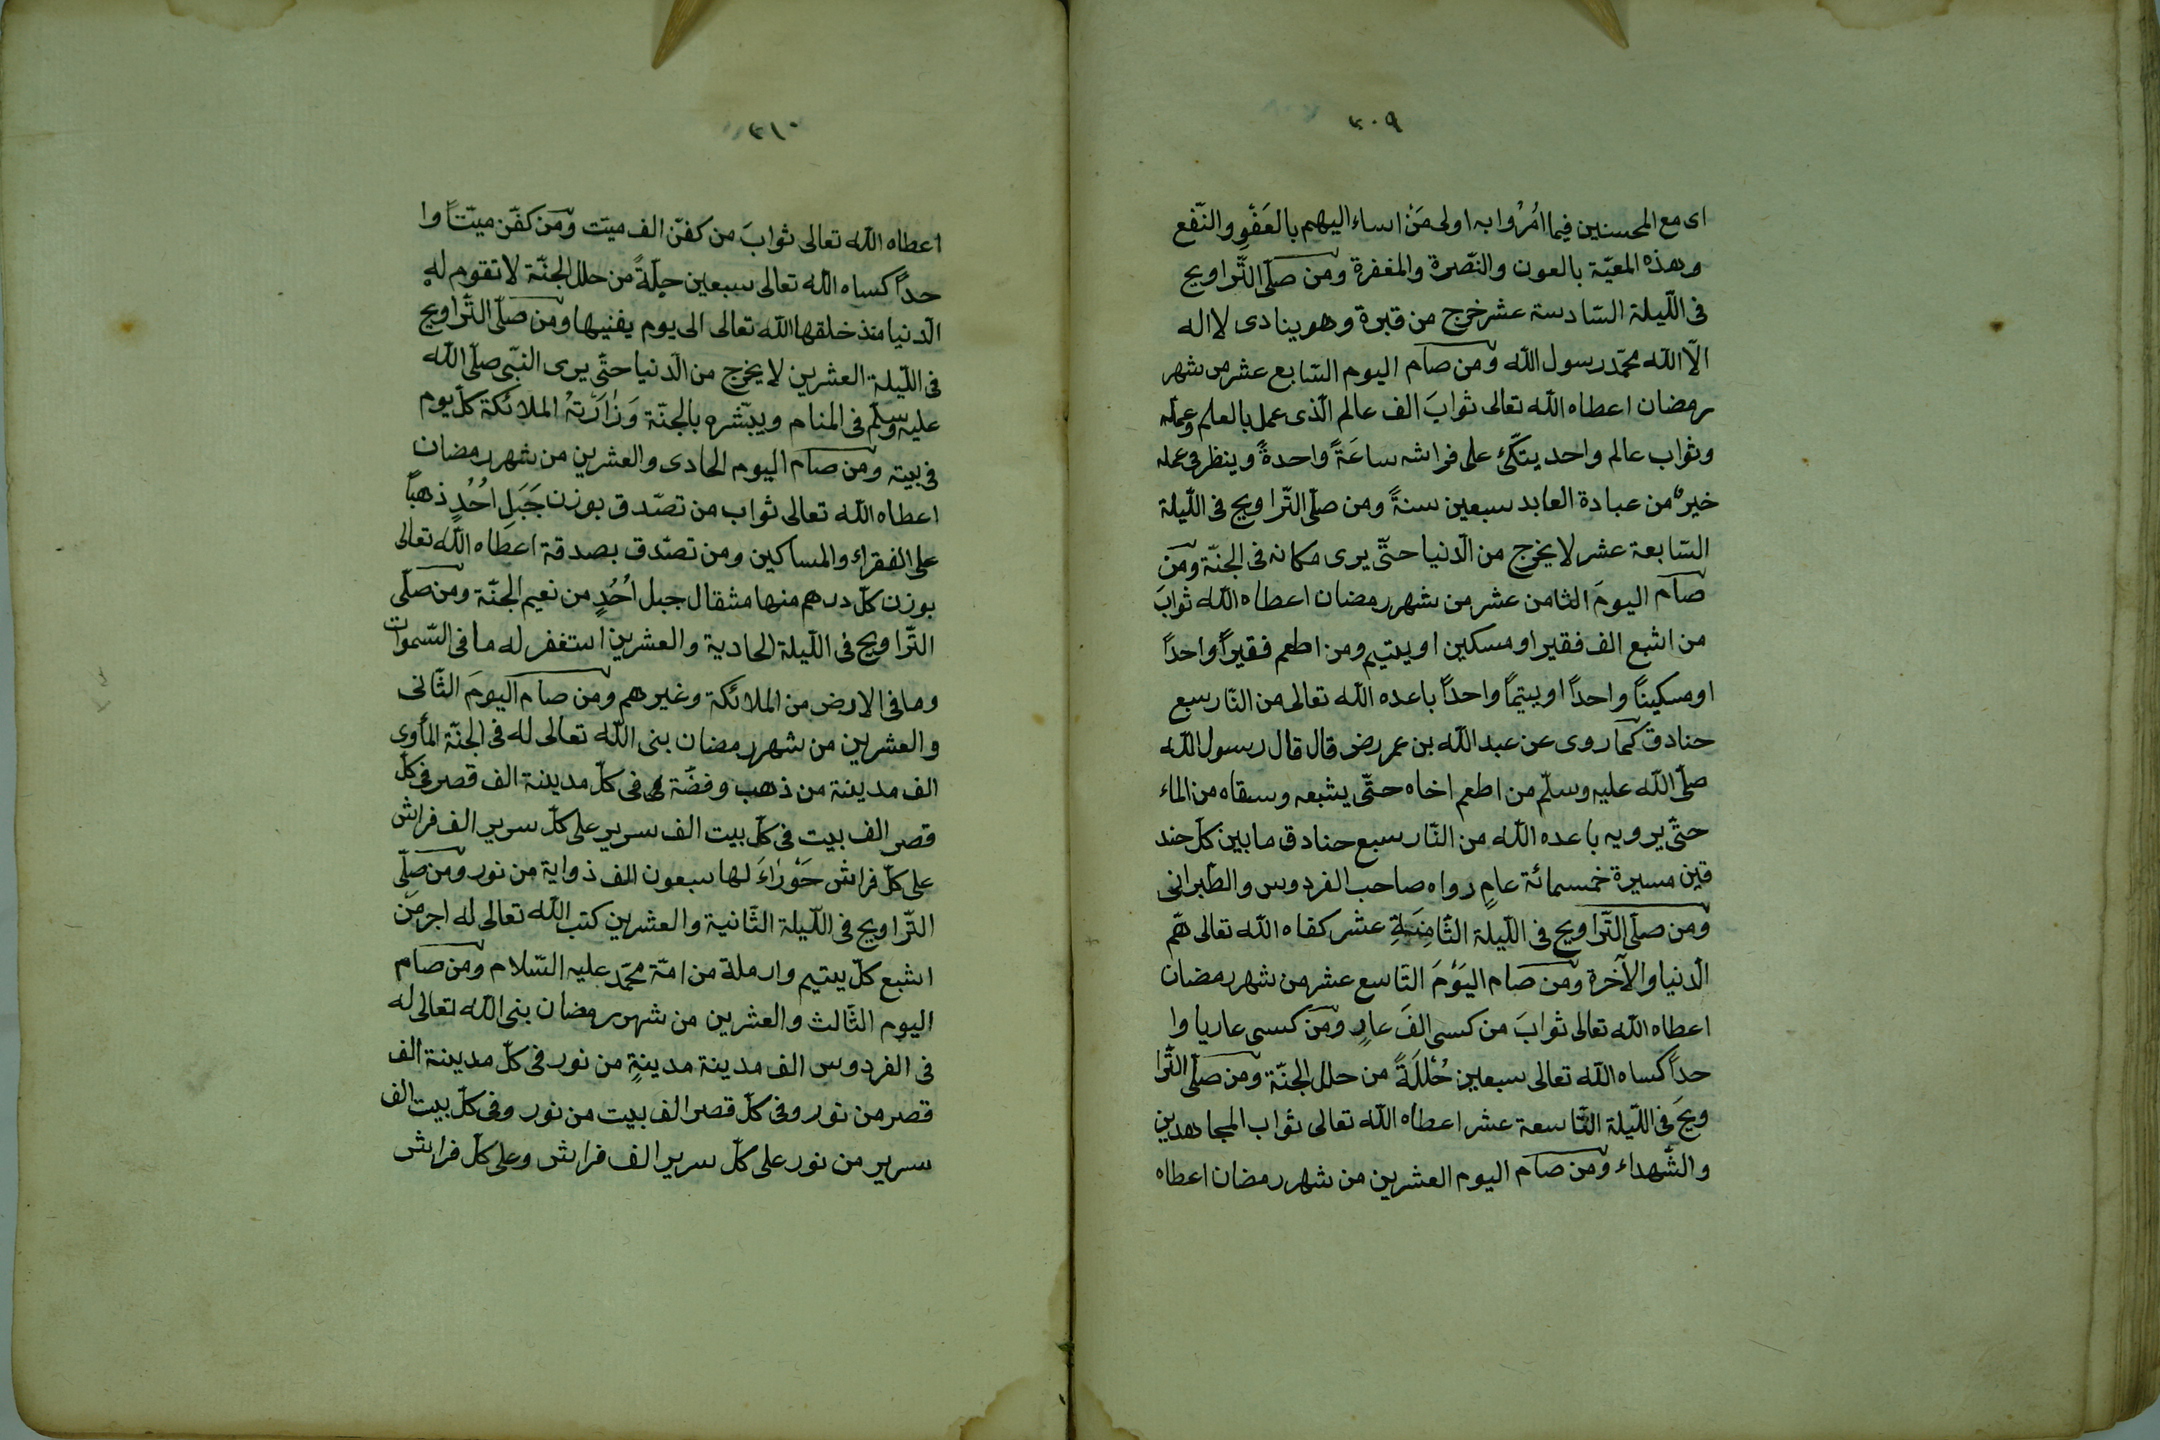 ٣٠٩
اى مع المحسنين فيما اُمُرْوا به اولى مَنْ اساء اليهم بالعَفْوِ والنّفع
وهذه المعيّة بالعون والنّصرة والمغفرة ومن صلّى التّراويح
فى اللّيلة السّادسة عشر خرج من قبرة وهو ينادى لا اله
الّا الله محمّد رسول الله ومن صام اليوم السّابع عشر من شهر
رمضان اعطاه الله تعالى ثوابَ الف عالم الّذى عمل بالعلم وعمله
وثواب عالم واحد يتّكئ على فراشه ساعَةً واحدةً وينظر فى عمله
خيرٌ من عبادة العابد سبعين سنةً ومن صلّى التّراويح فى اللّيلة
السّابعة عشر لا يخرج من الّدنيا حتّى يرى مكانه فى الجنّة ومن
صام اليومَ الثامن عشر من شهر رمضان اعطاه الله ثوابَ
من اشبع الف فقير او مسكين او يتيم ومن اطعم فقيراً واحداً
او مسكيناً واحداً او يتيماً واحداً باعده الله تعالى من النّار سبع
خنادق كما روى عن عبد الله بن عمر رض قال قال رسول الله
صلّى الله عليه وسلّم من اطعم اخاه حتّى يشبعه وسقاه من الماء
حتّى يرويه باعده الله من النّار سبع خنادق ما بين كلّ خند
قين مسيرة خمسمائة عامٍ رواه صاحب الفردوس والطّبرانى
ومن صلّى التّراويح فى اللّيلة الثّامِنَةِ عشر كفاه الله تعالى همّ
الّدنيا والآخرة ومن صام اليَوْمَ التّاسع عشر من شهر رمضان
اعطاه الله تعالى ثوابَ من كسى الفَ عارٍ ومن كسى عاريا وا
حداً كساه الله تعالى سبعين حُلْلَةً من حلل الجنّة ومن صلّى التّرا
ويحَ فى اللّيلة التّاسعة عشر اعطاه الله تعالى ثواب المجاهدين
والشّهداء ومن صام اليوم العشرين من شهر رمضان اعطاه
٣١٠
اعطاه الله تعالى ثوابَ من كفّن الف ميّت ومن كفّن ميّتاً وا
حداً كساه الله تعالى سبعين حلّةً من حلل الجنّة لا تقوم له
الّدنيا منذ خلقها الله تعالى الى يوم يفنيها ومن صلّى التّراويح
فى اللّيلة العشرين لا يخرج من الّدنيا حتّى يرى النبّى صلّى الله
عليه وسلّم فى المنام ويبّشره بالجنّة وَزٰارَتْهُ الملائكة كلّ يوم
فى بيته ومن صام اليوم الحادى والعشرين من شهر رمضان
اعطاه الله تعالى ثواب من تصّدق بوزن جَبَلِ اُحُدٍ ذهباً
على الفقراء والمساكين ومن تصّدق بصدقة اعطاه الله تعالى
بوزن كلّ درهم منها مثقال جبل اُحُدٍ من نعيم الجنّة ومن صلّى
التّراويح فى اللّيلة الحادية والعشرين استغفر له ما فى السّموات
وما فى الارض من الملائكة وغيرهم ومن صام اليومَ الثّانى
والعشرين من شهر رمضان بنى الله تعالى له فى الجنّة المأوى
الف مدينة من ذهب وفضّة فى كلّ مدينة الف قصر فى كلّ
قصر الف بيت فى كلّ بيت الف سرير على كلّ سرير الف فراش
على كلّ فراش حَوْرَاءَ لها سبعون الف ذواية من نور ومن صلّى
التّراويح فى اللّيلة الثّانية والعشرين كتب الله تعالى له اجر من
اشبع كلّ يتيم وارملة من امّة محمّد عليه السّلام ومن صام
اليوم الثّالث والعشرين من شهر رمضان بنى الله تعالى له
فى الفردوس الف مدينة مدينةٍ من نور فى كلّ مدينة الف
قصر من نور وفى كلّ قصر الف بيت من نور وفى كلّ بيت الف
سرير من نور على كلّ سرير الف فراش وعلى كلّ فراش